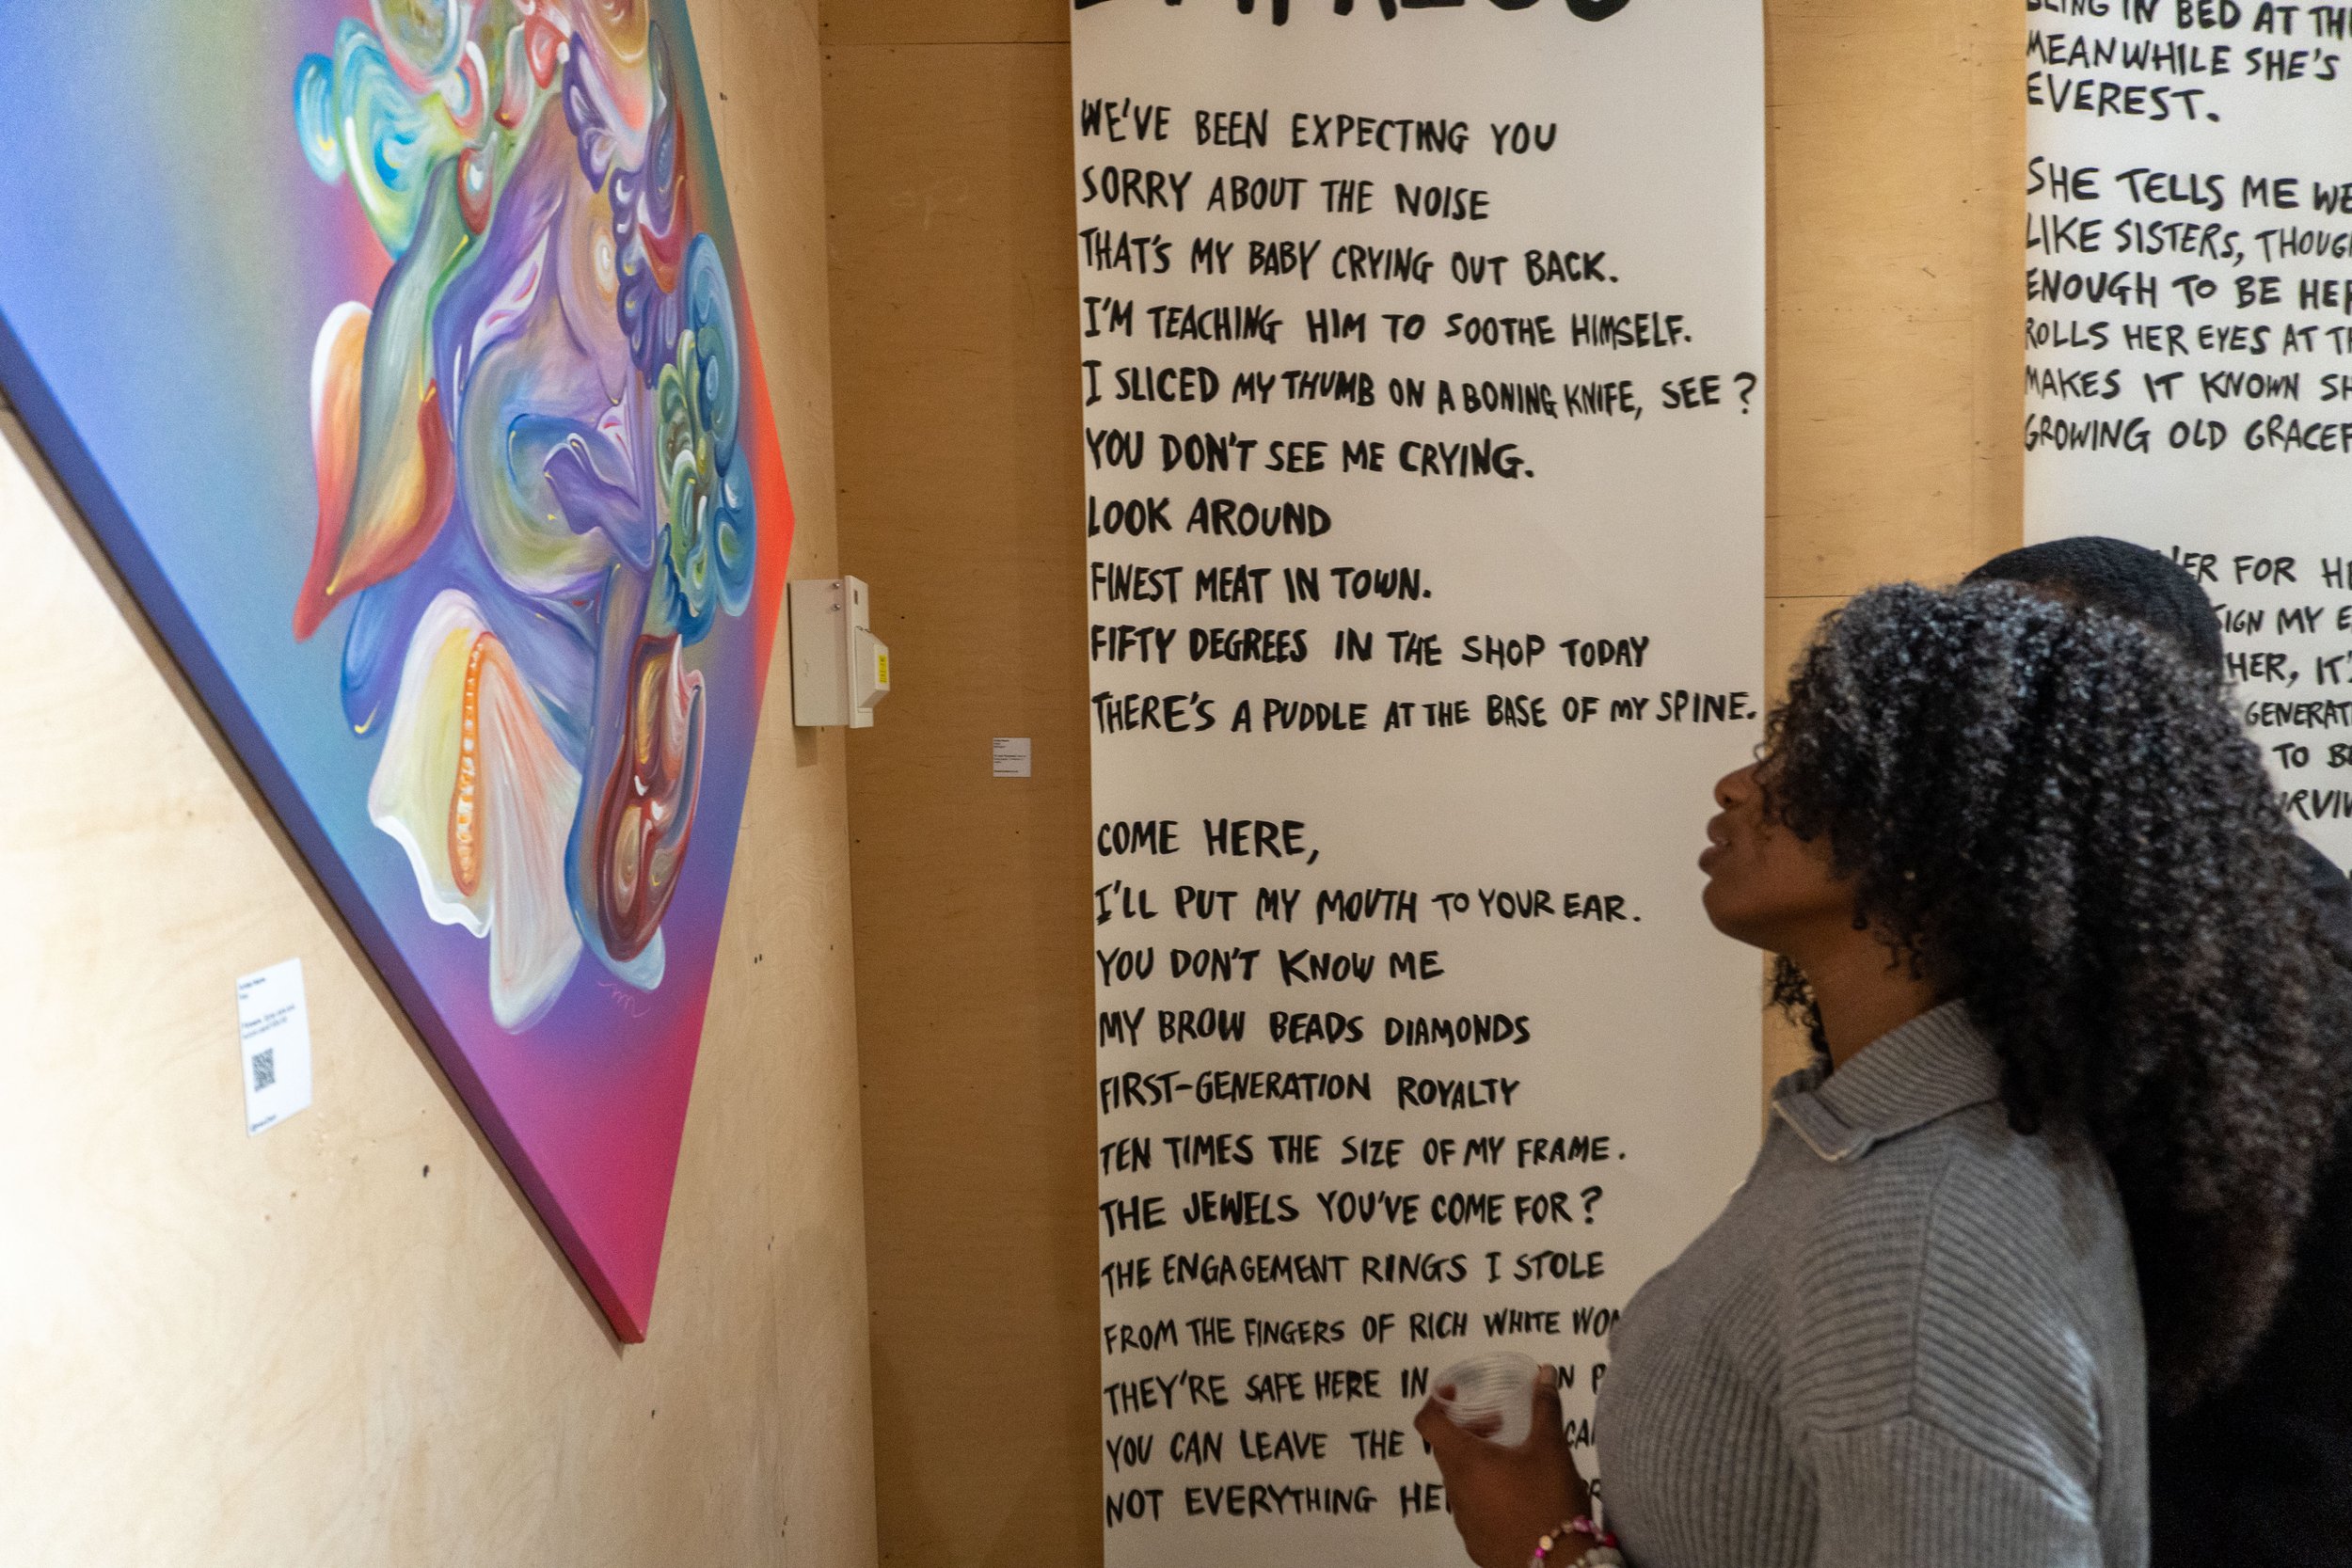 WE'VE BEEN EXPECTING YOU
SORRY ABOUT THE NOISE
THAT'S MY BABY CRYING OUT BACK.
I'M TEACHING HIM TO SOOTHE HIMSELF.
I SLICED MY THUMB ON A BONING KNIFE, SEE?
YOU DON'T SEE ME CRYING.
LOOK AROUND
FINEST MEAT IN TOWN.
FIFTY DEGREES IN THE SHOP TODAY
THERE'S A PUDDLE AT THE BASE OF MY SPINE.
COME HERE,
I'LL PUT MY MOUTH TO YOUR EAR.
YOU DON'T KNOW ME
MY BROW BEADS DIAMONDS
FIRST-GENERATION ROYALTY
TEN TIMES THE SIZE OF MY FRAME.
THE JEWELS YOU'VE COME FOR?
THE ENGAGEMENT RINGS I STOLE
FROM THE FINGERS OF RICH WHITE
THEY'RE SAFE HERE IN
YOU CAN LEAVE THE
NOT EVERYTHING
BEING IN BED AT
MEANWHILE SHE'S
EVEREST.
SHE TELLS ME
LIKE SISTERS,
ENOUGH TO BE HER
ROLLS HER EYES AT
MAKES IT KNOWN
GROWING OLD
FOR
MY
HER,
TO